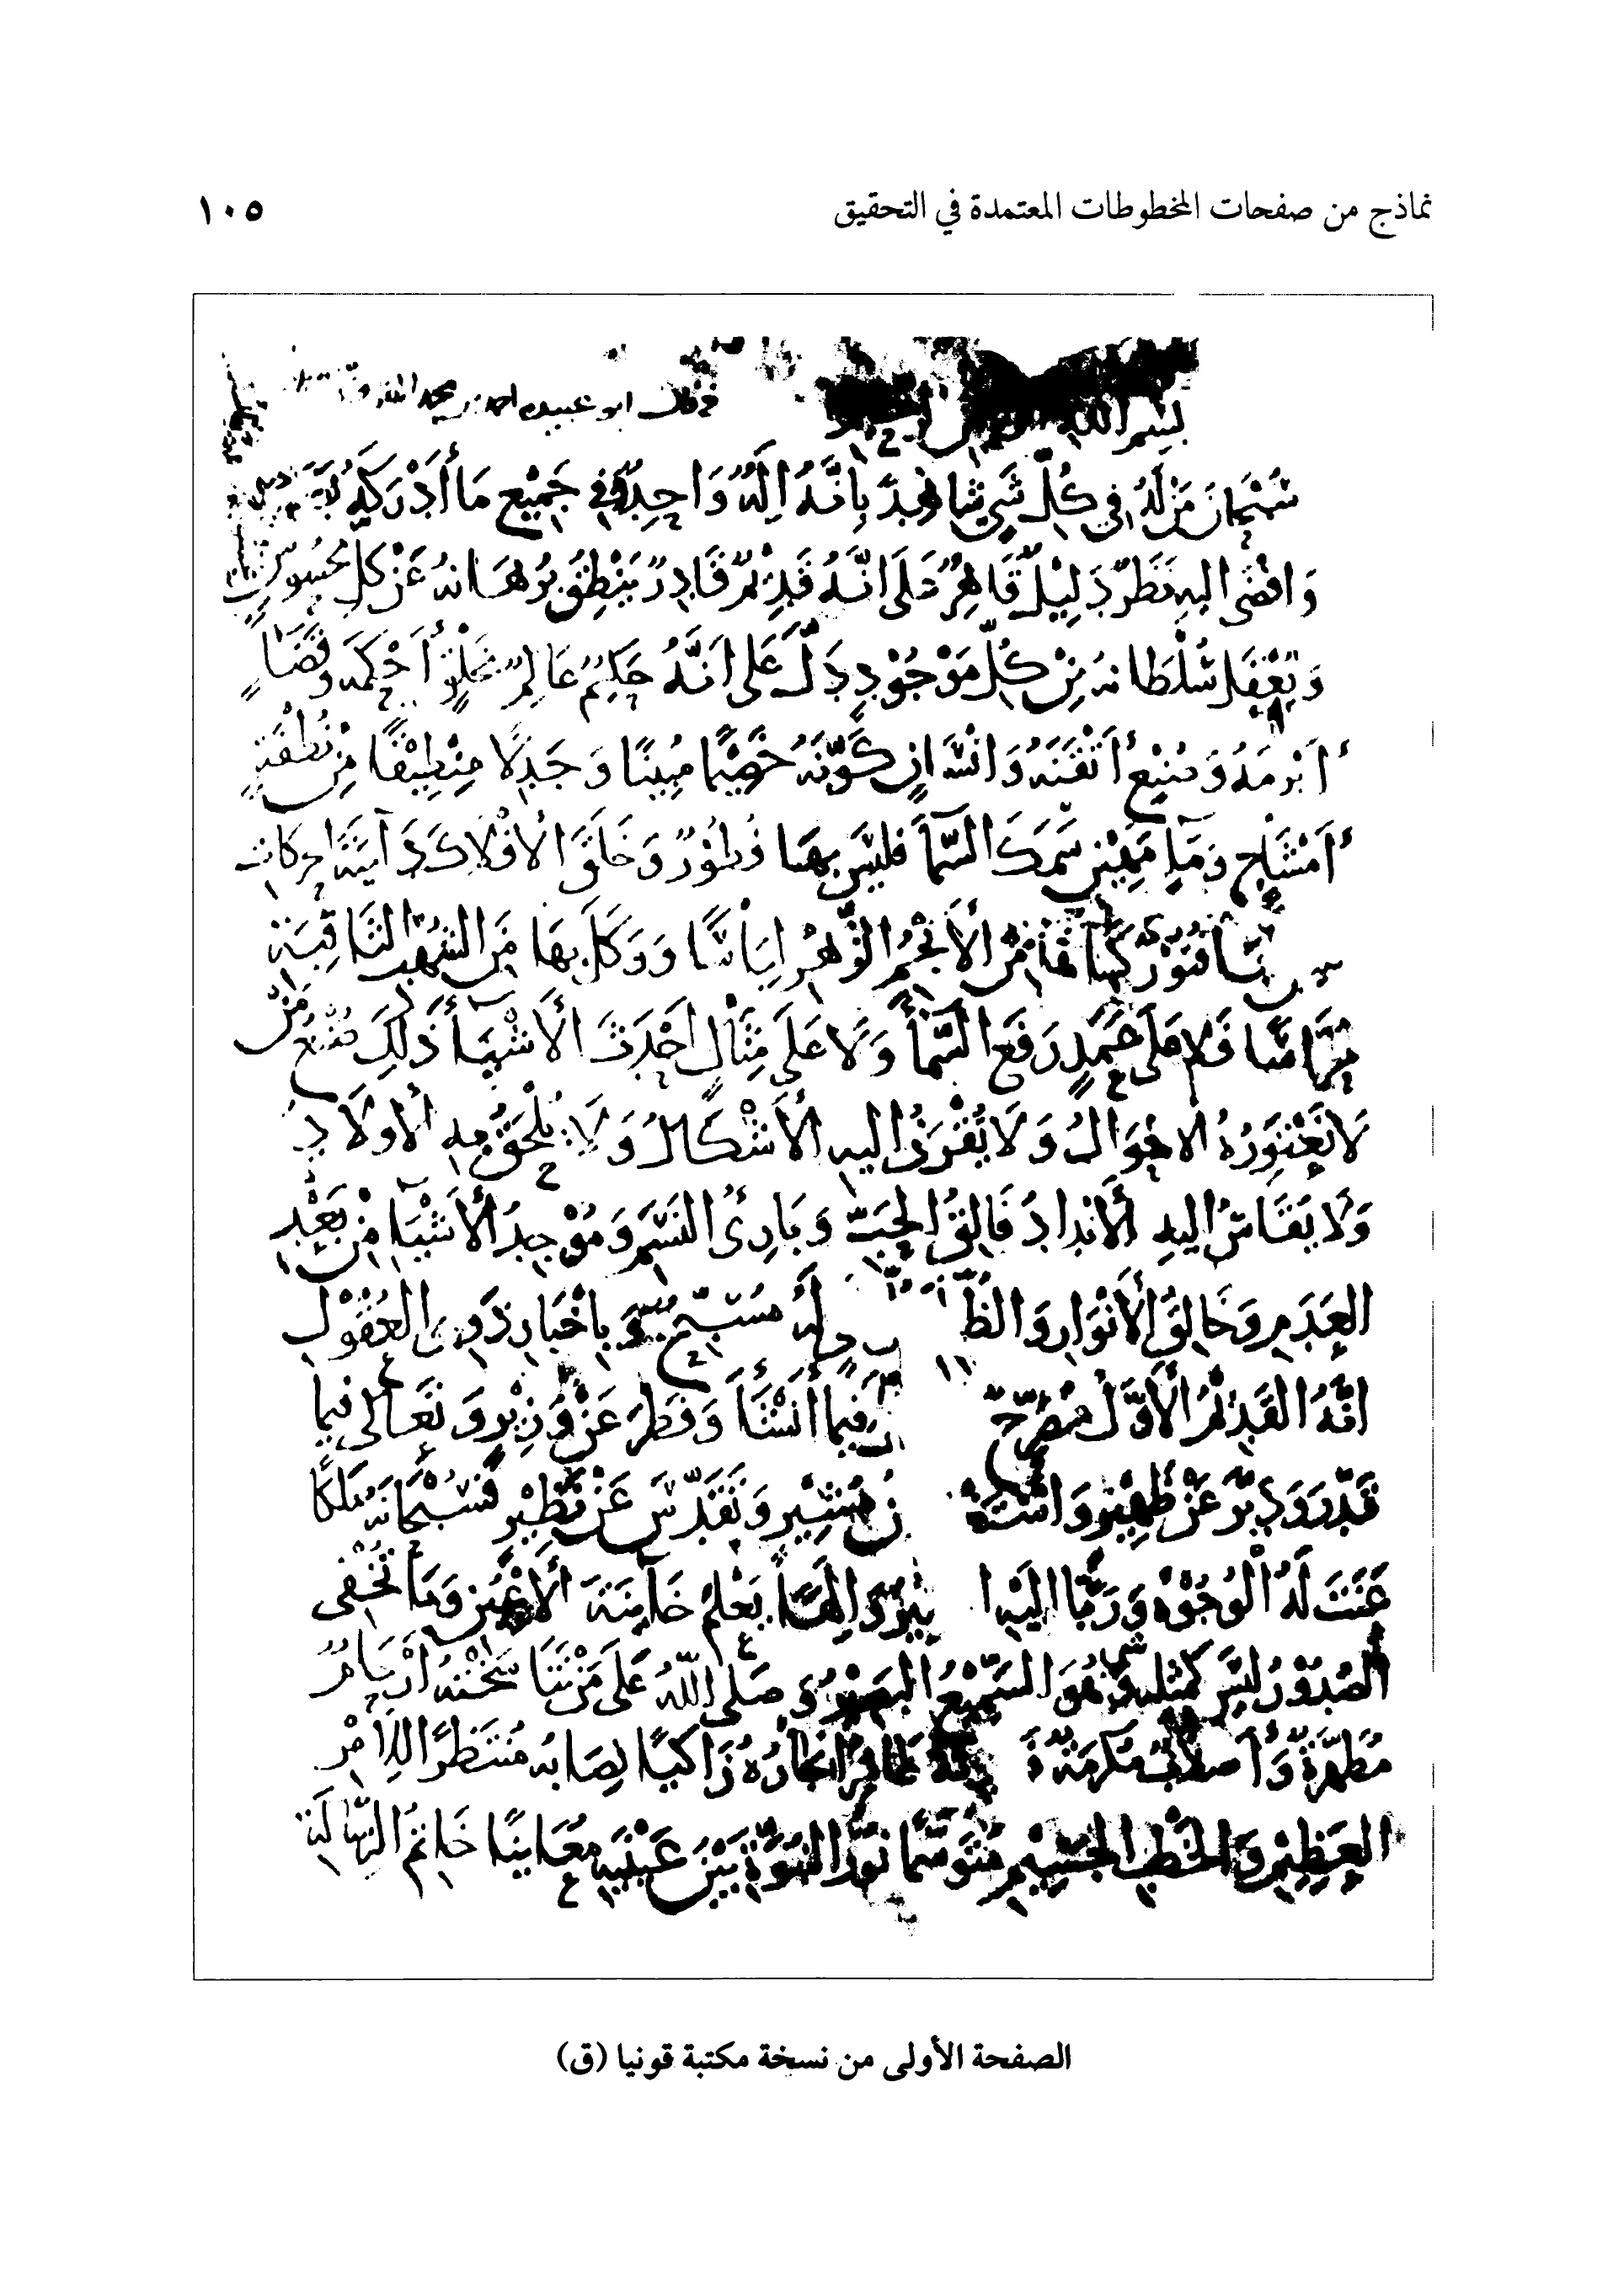 نماذج من صفحات المخطوطات المعتمدة في التحقيق ١٠٥
بسم الله قال ابو عبيده احمد بن محمد
سُبْحَانَ مَنْ لَهُ في كُلِّ شَيءٍ شاهِدٌ بِاَنَّهُ اِلَهٌ وَاحِدٌ وَفي جَمِيْعِ مَا أَدْرَكَهُ
وَافْضَى اليهِ نَظَرٌ دَلِيْلٌ قَاهِرٌ عَلَى انَّهُ قَدِيْمٌ قَادِرٌ يَنْطِقُ بُرْهَانهُ عَنْ كلِ محْسُوسٍ
سُلْطَانهُ مِنْ كُلِّ مَوْجُوْدٍ دَلَّ عَلى اَنَّهُ حَكِيْمٌ عَالِمٌ خَلْقٍ أَحْكَمَه وقَضَاءٍ
أَبْرمَهُ وَصُنْعٍ أَتْقَنَهُ وَانْسَانٍ كَوَّنَهُ خَصِيْمًا مُبِيْنًا وَجَدِلًا مِنْطِيْقًا مِنْ نُطْفَةٍ
أَمْشَاجٍ وَمَاءٍ مَهِيْنٍ سَمَكَ السَّمآءَ فليسَ بها فُطُوْرٌ وَخَلَقَ الافْلاكَ دَآئِبَةَ الحركات
منَ الأَنْجُمِ الزُّهْرِ لِبَاسًا وَوَكَلَ بها مِنَ الشُهُبِ الثَاقِبَة
حَرَّاسًا فَلا عَلى عَمَدٍ رَفَعَ السَّمآءَ وَلَا عَلَى مِثَالٍ اَحْدَثَ الأَشْيَآءَ ذَلِكَ صُنْعُ مَنْ
لَا تَعْتَوِرُهُ الاحْوَالُ وَلَا تُعْزَىُ اليهِ الأَشْكَالُ وَلَا يُلْحَقُ بهِ الأَولَادُ
وَلَا يُقَاسُ اليهِ الأَنْدَادُ فَالِقُ الحَبَّ وَبَارِئُ النَسَمِ وَمُوْجِدُ الأَشْيَآءِ مِنْ بَعْدِ
العَدَمِ وَخَالِقُ الأَنْوَارِ وَالظُّ بِاخْبَارِ ذَوِى العُقُوْلِ
انَّهُ القَدِيْمُ الأَوَّلُ فِيمَا أَنْشَأَ وَفَطَرَ عَنْ وَزِيْرٍ وَتَعَالى فيما
قَدَّرَ وَدَبَّرَ عَنْ ظَهِيْرٍ مُشِيْرٍ وَتَقَدَّسَ عَنْ نَظِيْرٍ فَسُبْحَانَهُ مَلِكًا
عَنَتْ لَهُ الْوُجُوْهُ وَرَبًّا اليهِ يَعْلَمُ خَآئِنَةَ الأَعْيُنِ وَمَا تُخْفى
الصُّدُوْرُ ليْسَ كَمثلِهِ شىٌ وَهُوَ السَّمِيْعُ البَصِيْرُ وَصَلى اللّهُ عَلى مَنْ نَسَخَتْهُ أَرْحَامٌ
مُطَهَّرَةٌ وَأَصلَابٌ مُكَرَّمَةٌ نِجَارُهُ زَاكيًا نِصَابُه مُنْتَظَرًا لِلاَمْرِ
العَظِيْمِ وَالخَطْبِ الجَسِيْمِ مُتَوَسَّمًا نُوْرُ النُبُوَّةِ بَيْنَ عَيْنَيْهِ مُعَايَنًا خَاتمُ الرِسَالَةِ
الصفحة الأولى من نسخة مكتبة قونيا (ق)